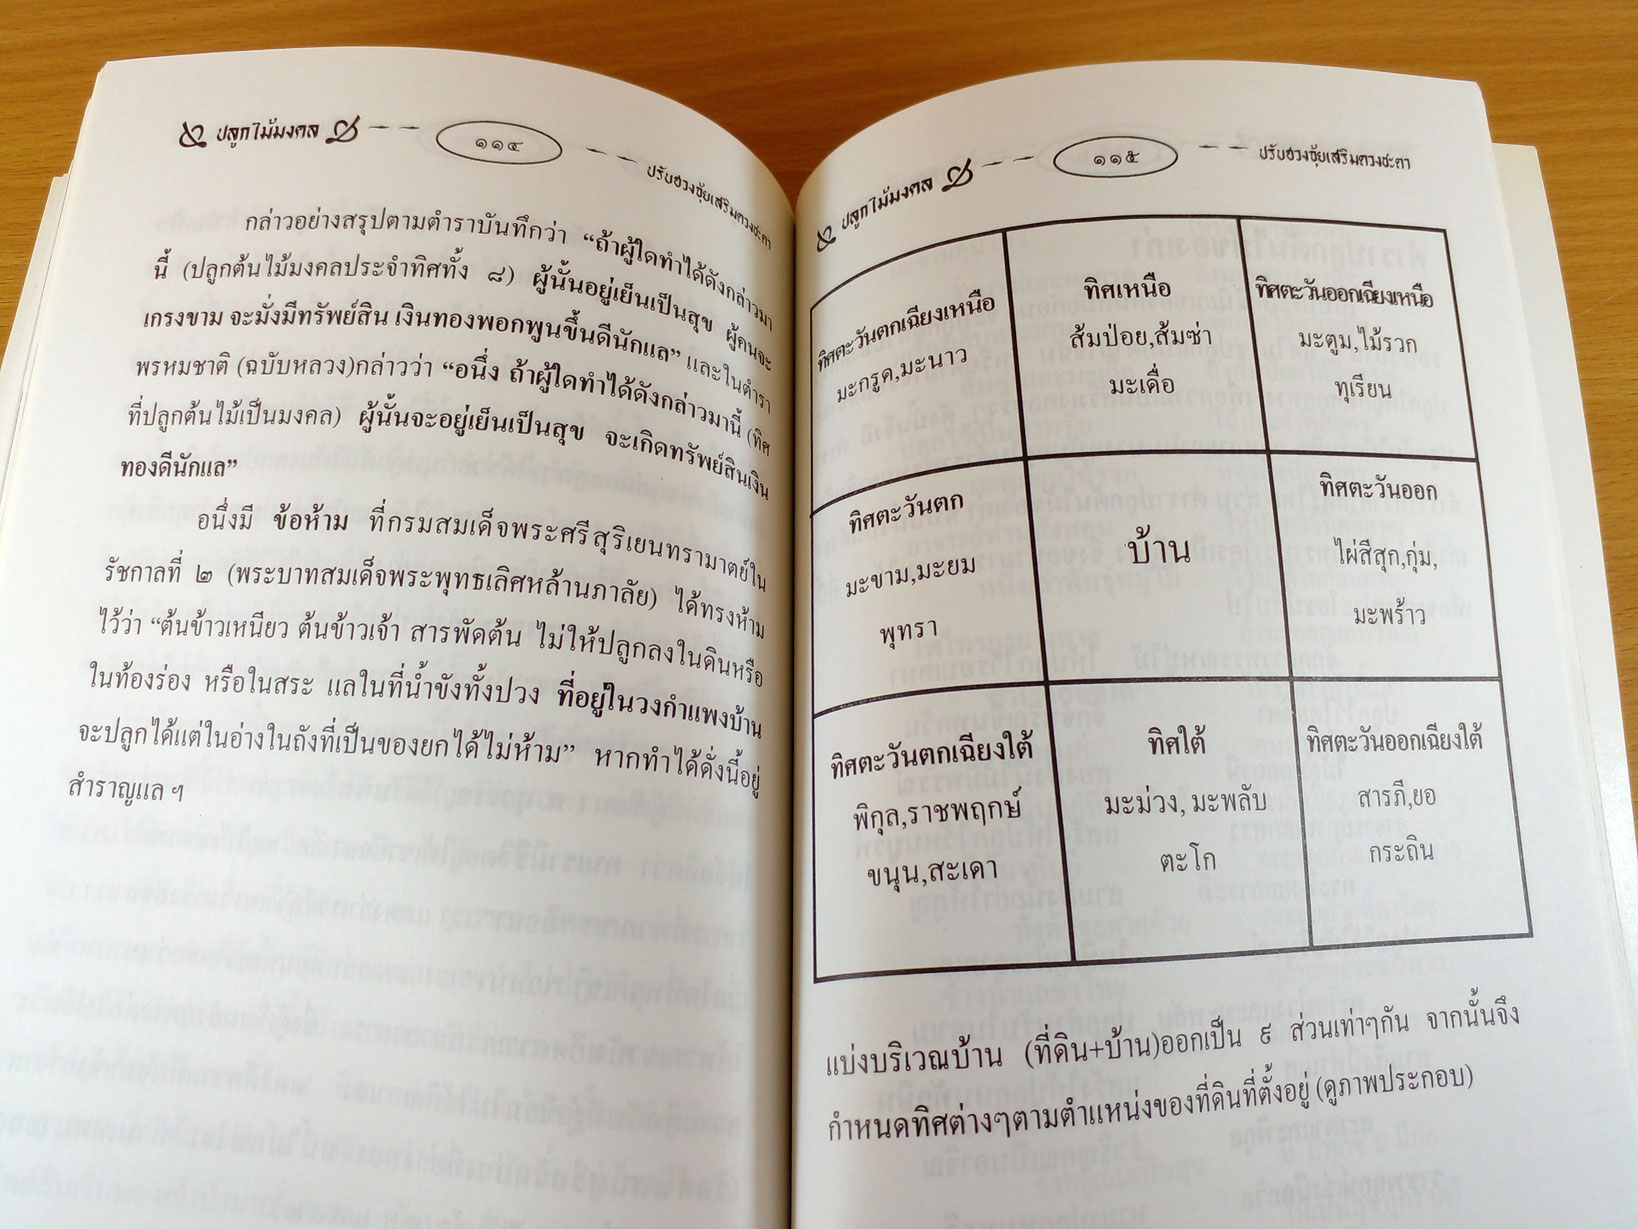 ปลูกไม้มงคล
๑๑๔
ปรับฮวงจุ้ยเสริมดวงชะตา
กล่าวอย่างสรุปตามตำราบันทึกว่า “ถ้าผู้ใดทำได้ดังกล่าวมา
นี้ (ปลูกต้นไม้มงคลประจำทิศทั้ง ๘) ผู้นั้นอยู่เย็นเป็นสุข ผู้คนจะ
เกรงขาม จะมั่งมีทรัพย์สิน เงินทองพอกพูนขึ้นดีนักแล” และในตำรา
พรหมชาติ (ฉบับหลวง)กล่าวว่า “อนึ่ง ถ้าผู้ใดทำได้ดังกล่าวมานี้ (ทิศ
ที่ปลูกต้นไม้เป็นมงคล) ผู้นั้นจะอยู่เย็นเป็นสุข จะเกิดทรัพย์สินเงิน
ทองดีนักแล”
อนึ่งมี ข้อห้าม ที่กรมสมเด็จพระศรีสุริเยนทรามาตย์ใน
รัชกาลที่ ๒ (พระบาทสมเด็จพระพุทธเลิศหล้านภาลัย) ได้ทรงห้าม
ไว้ว่า “ต้นข้าวเหนียว ต้นข้าวเจ้า สารพัดต้น ไม่ให้ปลูกลงในดินหรือ
ในท้องร่อง หรือในสระ แลในที่น้ำขังทั้งปวง ที่อยู่ในวงกำแพงบ้าน
จะปลูกได้แต่ในอ่างในถังที่เป็นของยกได้ไม่ห้าม” หากทำได้ดั่งนี้อยู่
สำราญแล ฯ
ปลูกไม้มงคล
๑๑๕
ปรับฮวงจุ้ยเสริมดวงชะตา
ทิศตะวันตกเฉียงเหนือ
มะกรูด,มะนาว
ทิศเหนือ
ส้มป่อย,ส้มซ่า
มะเดื่อ
ทิศตะวันออกเฉียงเหนือ
มะตูม,ไม้รวก
ทุเรียน
ทิศตะวันตก
มะขาม,มะยม
พุทรา
บ้าน
ทิศตะวันออก
ไผ่สีสุก,กุ่ม,
มะพร้าว
ทิศตะวันตกเฉียงใต้
พิกุล,ราชพฤกษ์
ขนุน,สะเดา
ทิศใต้
มะม่วง, มะพลับ
ตะโก
ทิศตะวันออกเฉียงใต้
สารภี,ยอ
กระถิน
แบ่งบริเวณบ้าน (ที่ดิน+บ้าน)ออกเป็น ๙ ส่วนเท่าๆกัน จากนั้นจึง
กำหนดทิศต่างๆตามตำแหน่งของที่ดินที่ตั้งอยู่ (ดูภาพประกอบ)